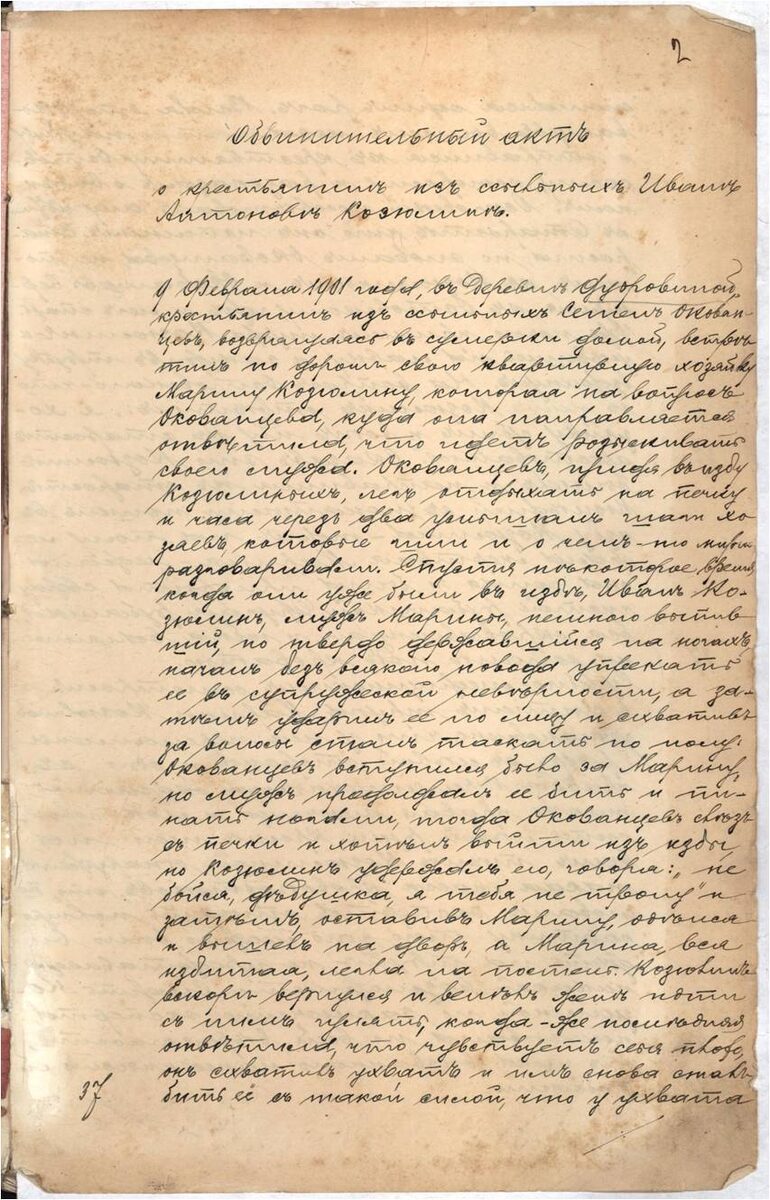 2
Обвинительный актъ
о крестьянинѣ изъ ссыльныхъ Иванѣ
Антоновѣ Козюлинѣ.
9 Февраля 1901 года, въ деревнѣ
крестьянинъ изъ ссыльныхъ Семенъ Окован-
цевъ, возвращаясь въ сумерки домой, встрѣ-
тилъ по дорогѣ свою квартирную хозяйку
Марину Козюлину, которая на вопросъ
Окованцева, куда она направляется
отвѣтила, что идетъ розыскивать
своего мужа. Окованцевъ, придя въ избу
Козюлиныхъ, легъ отдыхать на печку
и часа черезъ два услышалъ шаги хо-
зяевъ, которые шли и о чемъ-то мирно
разговаривали. Спустя нѣкоторое время,
когда они уже были въ избѣ, Иванъ Ко-
зюлинъ, мужъ Марины, немного выпив-
шій, но твердо державшійся на ногахъ,
началъ безъ всякаго повода упрекать
ее въ супружеской невѣрности, а за-
тѣмъ ударилъ ее по лицу и схвативъ
за волосы сталъ таскать по полу.
Окованцевъ вступился было за Марину,
но мужъ продолжалъ ее бить и пи-
нать ногами, тогда Окованцевъ слѣзъ
съ печки и хотѣлъ выйти изъ избы,
но Козюлинъ удержалъ его, говоря: „не
бойся, дѣдушка, я тебя не трону“ и
затѣмъ, оставивъ Марину, одѣлся
и вышелъ на дворъ, а Марина, вся
избитая, легла на постель. Козюлинъ
вскорѣ вернулся и велѣлъ женѣ идти
съ нимъ гулять, когда-же послѣдняя
отвѣтила, что чувствуетъ себя плохо,
онъ схватилъ ухватъ и имъ снова сталъ
бить ее съ такой силой, что у ухвата
37